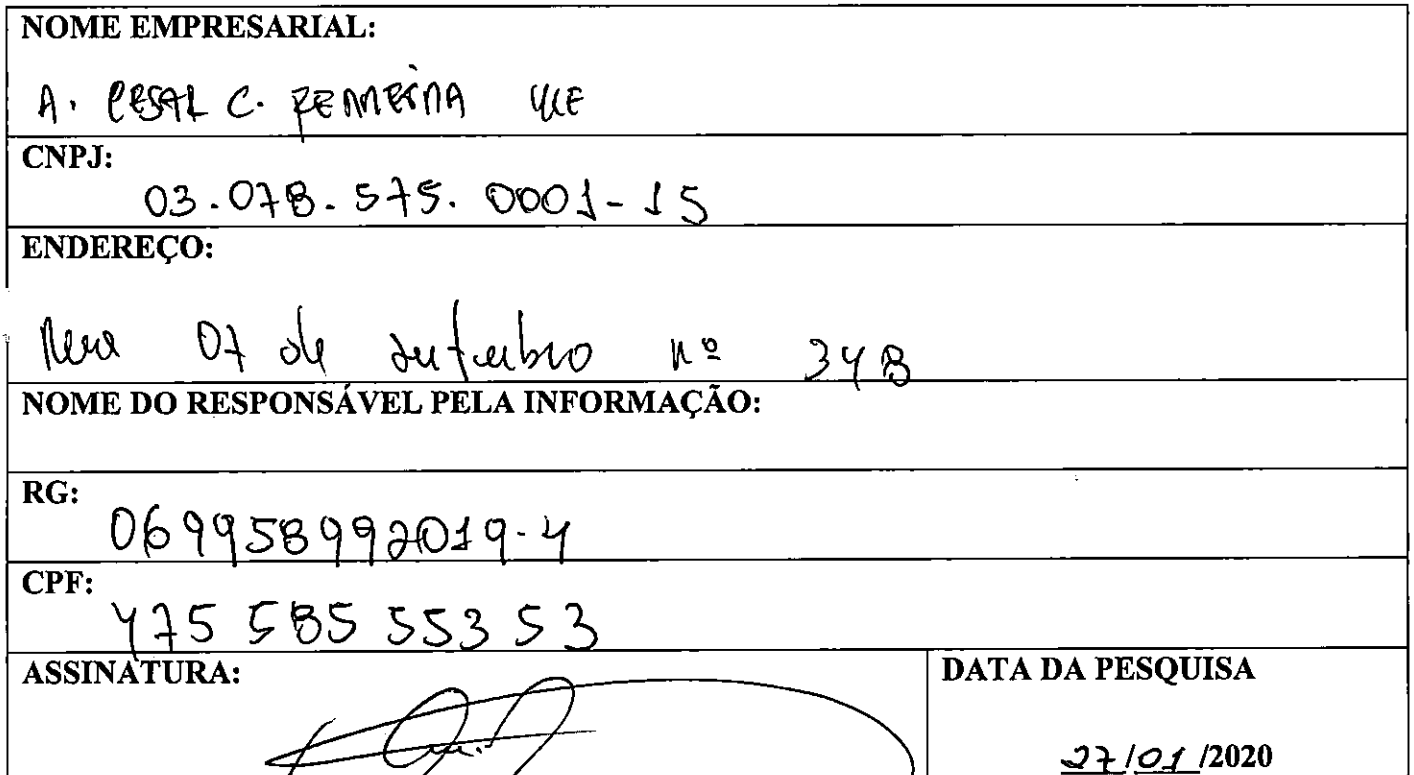 NOME EMPRESARIAL:
A. CESAR C. FERREIRA ME
CNPJ:
03.078.575.0001-15
ENDEREÇO:
Rua 07 de setembro nº 348
NOME DO RESPONSÁVEL PELA INFORMAÇÃO:
RG:
069958992019-4
CPF:
475 585 553 53
ASSINATURA:
DATA DA PESQUISA
27/01/2020